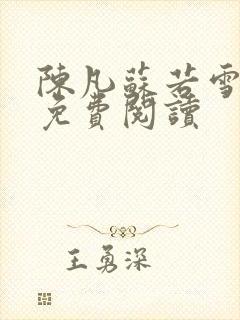 陳凡蘇若雪
免費閱讀
王勇深